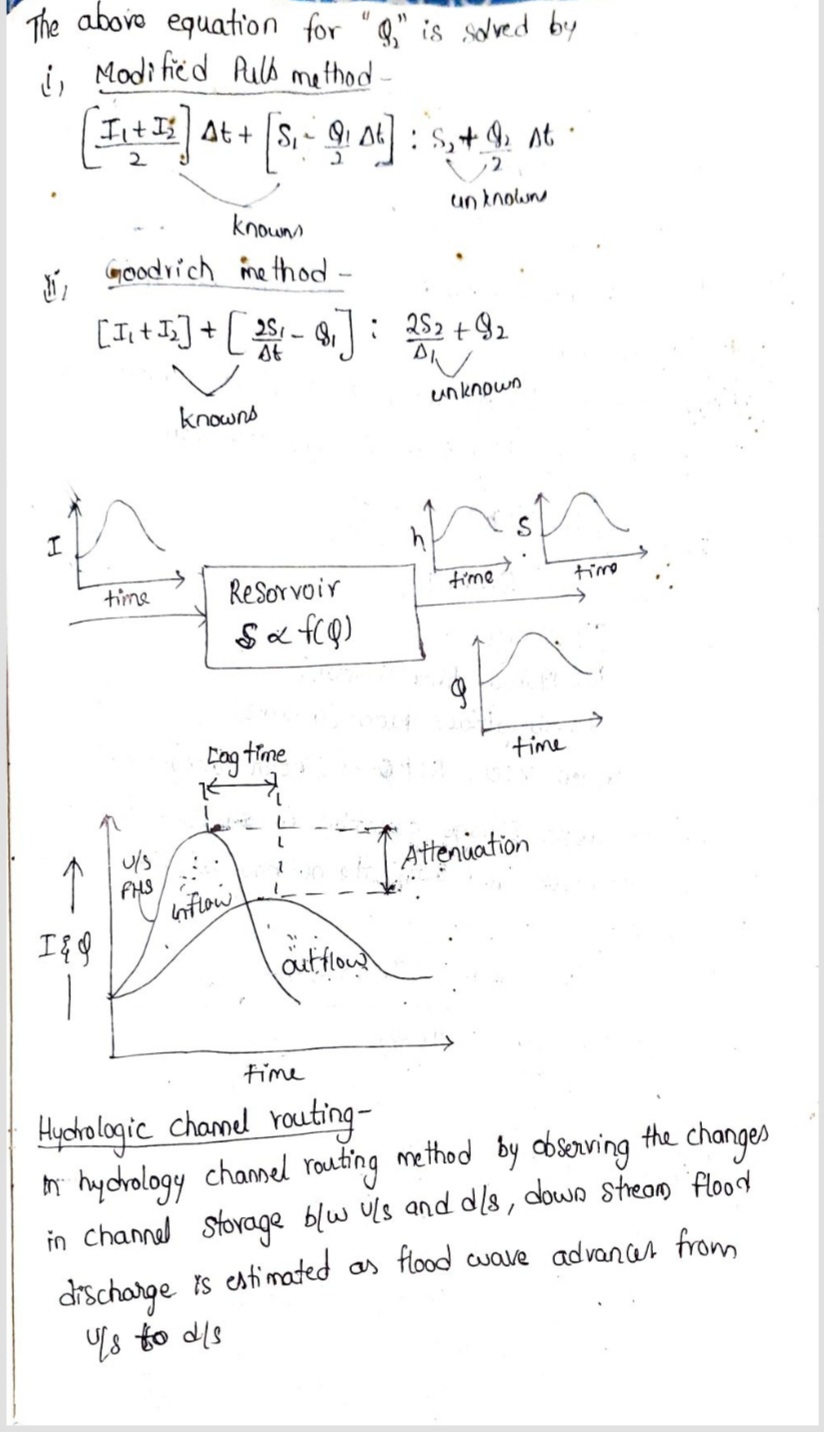 The above equation for "Q₂" is solved by
i, Modified Puls method -
[I₁+I₂/2] Δt + [S₁ - Q₁/2 Δt] : S₂ + Q₂/2 Δt
unknowns
knowns
ii, Goodrich method -
[I₁+I₂] + [2S₁/Δt - Q₁] : 2S₂/Δ1 + Q₂
unknown
knowns
I
time
Reservoir
S ∝ f(Q)
h
time
S
time
Q
time
Lag time
Attenuation
u/s
FHS
inflow
I & Q
outflow
time
Hydrologic channel routing-
In hydrology channel routing method by observing the changes
in channel storage b/w u/s and d/s, down stream flood
discharge is estimated as flood wave advances from
u/s to d/s